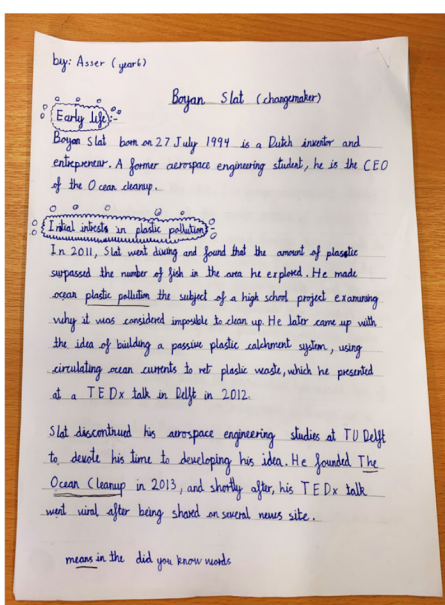 by: Asser (year6)
Boyan Slat (changemaker)
Early life:-
Boyan Slat born on 27 July 1994 is a Dutch inventor and
entrepreneur. A former aerospace engineering student, he is the CEO
of the Ocean cleanup.
Initial intrests in plastic pollution:-
In 2011, Slat went diving and found that the amount of plasstic
surpassed the number of fish in the area he explored. He made
ocean plastic pollution the subject of a high school project examining
why it was considered imposible to clean up. He later came up with
the idea of building a passive plastic catchment system, using
circulating ocean currents to net plastic waste, which he presented
at a TEDx talk in Delft in 2012.
Slat discontinued his aerospace engineering studies at TU Delft
to devote his time to developing his idea. He founded The
Ocean Cleanup in 2013, and shortly after, his TEDx talk
went viral after being shared on several news site.
means in the did you know words